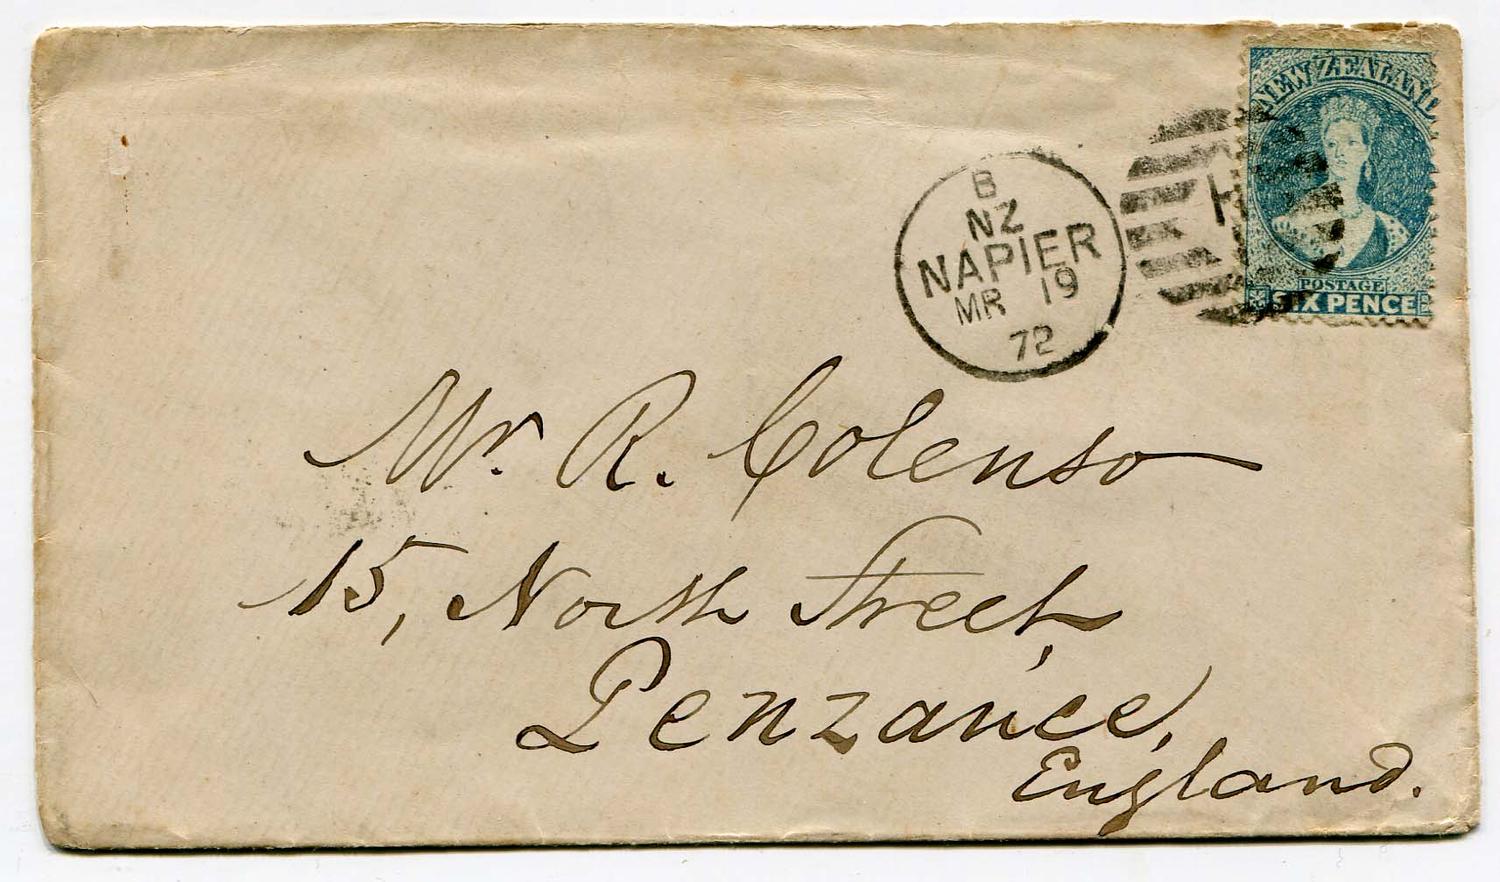 NEW ZEALAND
POSTAGE
SIX PENCE
B
NZ
NAPIER
MR 19
72
H
Mr. R. Colenso
15, North Street,
Penzance,
England.